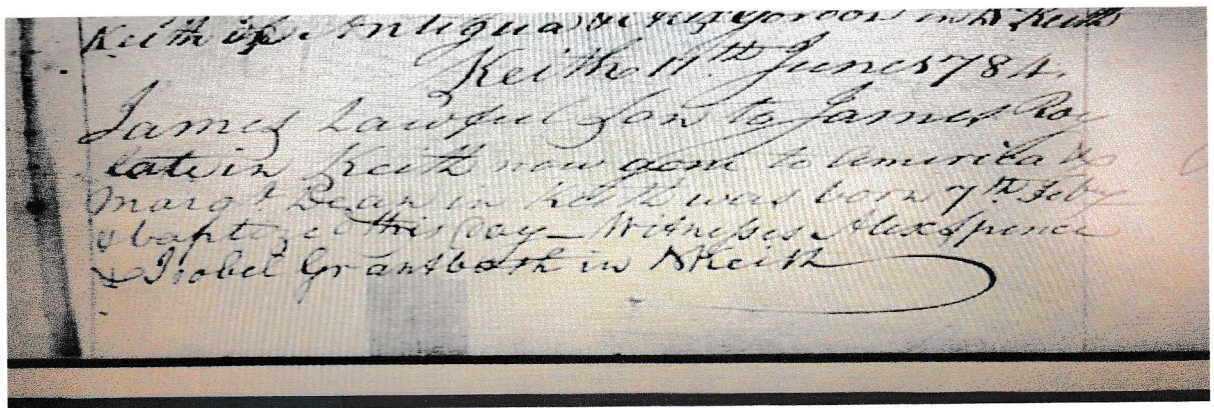 Keith of Antigua & Gordon in N Keith
Keith 11th June 1784.
James Lawful Son to James Roy
late in Keith now gone to America &
Margt Dean in Keith was born 7th Feby
& baptized this day – Witnesses Alexr Spence
& Isobel Grant both in NKeith